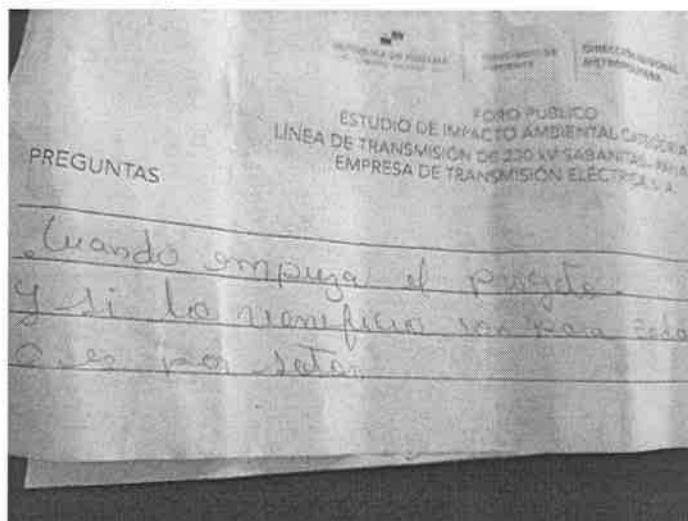 REPÚBLICA DE PANAMÁ
MINISTERIO DE
AMBIENTE
DIRECCIÓN REGIONAL
METROPOLITANA
FORO PUBLICO
ESTUDIO DE IMPACTO AMBIENTAL CATEGORIA
LÍNEA DE TRANSMISIÓN DE 230 kV SABANITAS-
EMPRESA DE TRANSMISIÓN ELÉCTRICA S.A.
PREGUNTAS
Cuando empieza el
y si lo son para
o es por